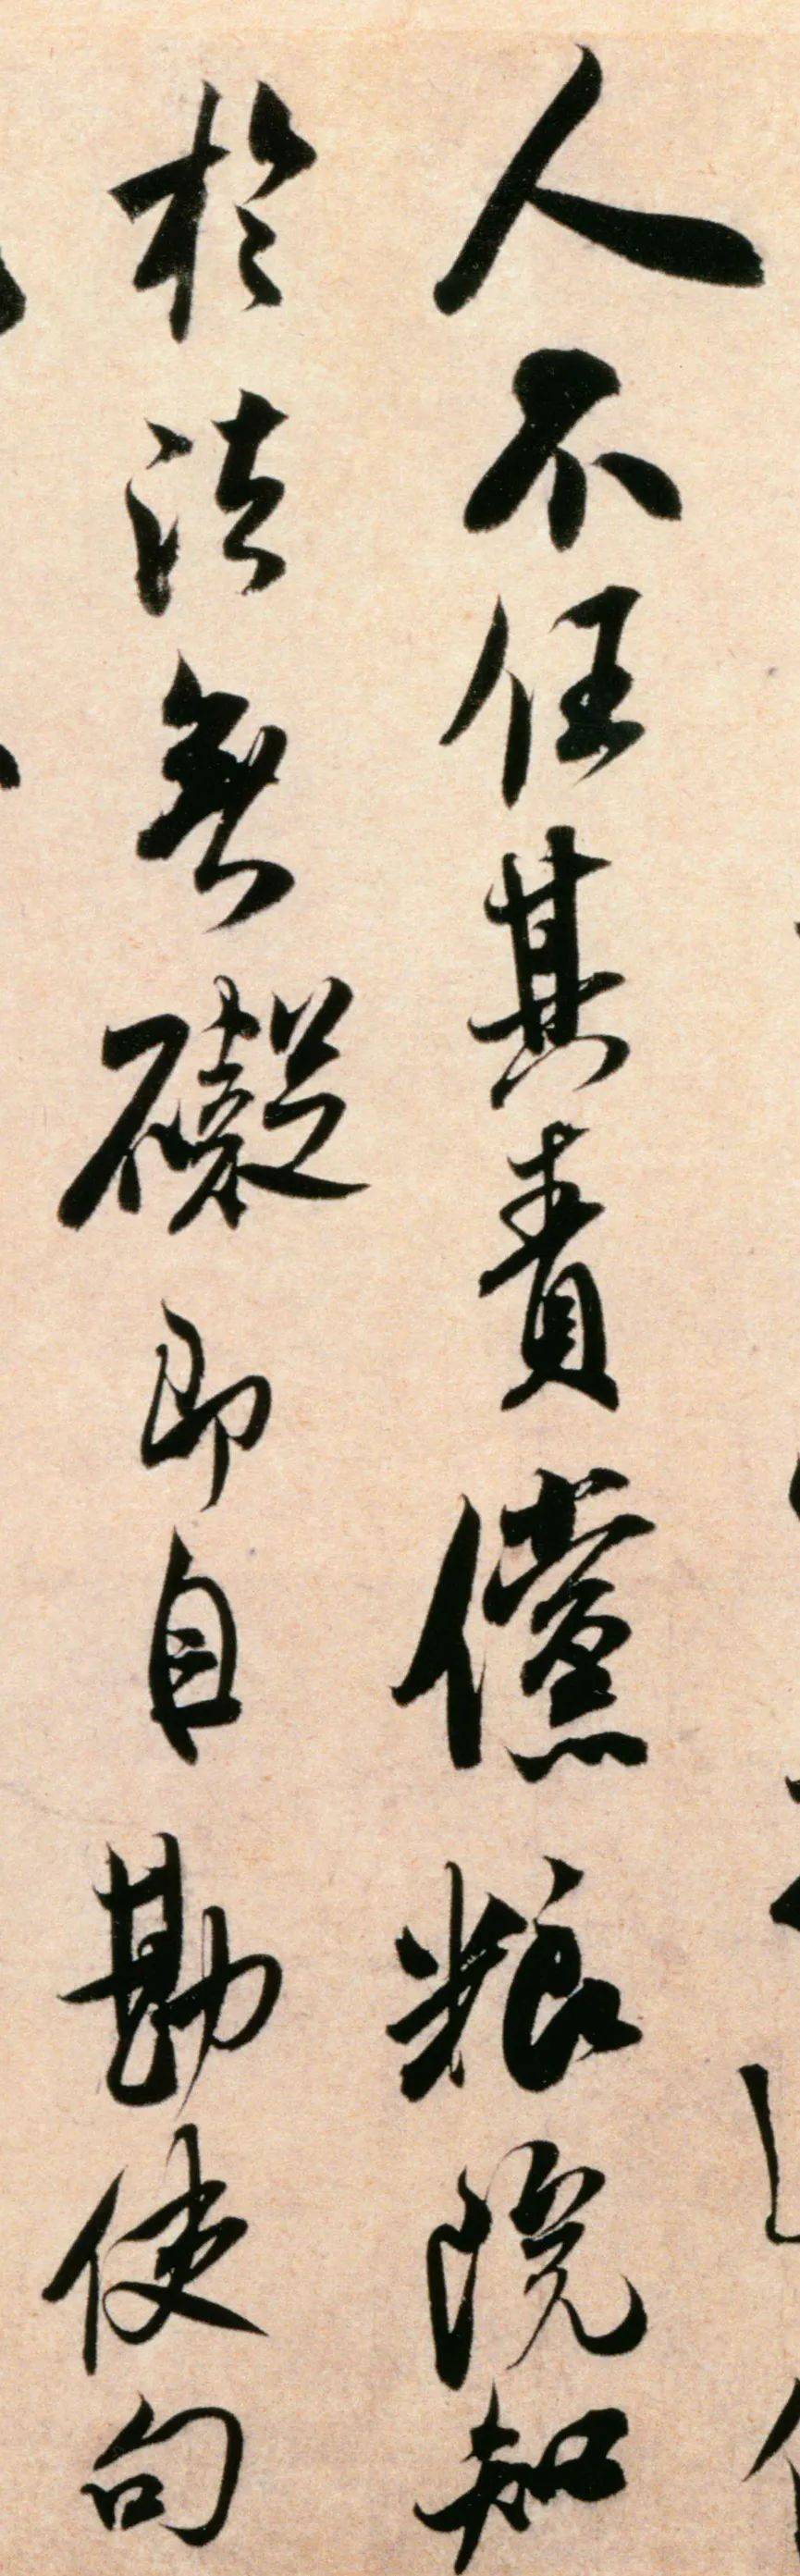 人不任其責儻粮院知
於法無礙即自勘使句